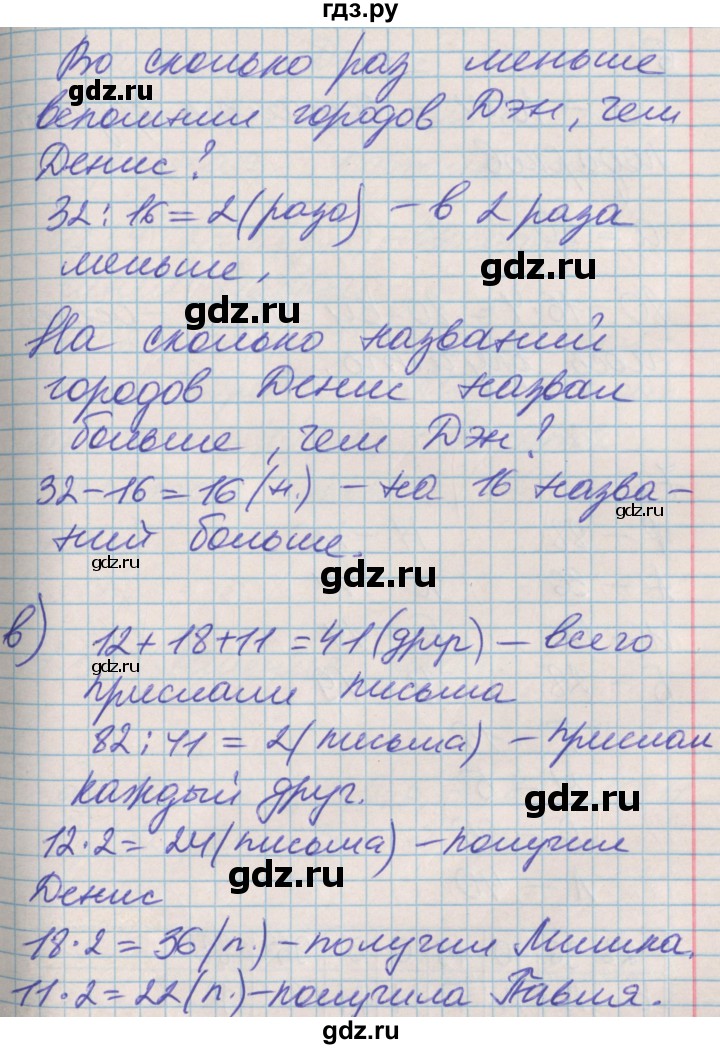 гдз.ру
Во сколько раз меньше
gdz.ru
вспомнил городов Дэн, чем
Денис?
gdz.ru
32:16=2(раза) – в 2 раза
меньше,
gdz.ru
gdz.ru
На сколько названий
городов Денис назвал
gdz.ru
больше, чем Дэн?
32-16=16(н.) – на 16 назва-
gdz.ru
ний больше.
gdz.ru
gdz.ru
в) 12+18+11=41(друг) – всего
gdz.ru
прислали письма
82:41=2(письма) – прислал
gdz.ru
каждый друг.
gdz.ru
12·2=24(письма) – получил
gdz.ru
Денис
18·2=36(п.) – получил Мишка.
11·2=22(п.) – получила Павля.
gdz.ru
gdz.ru